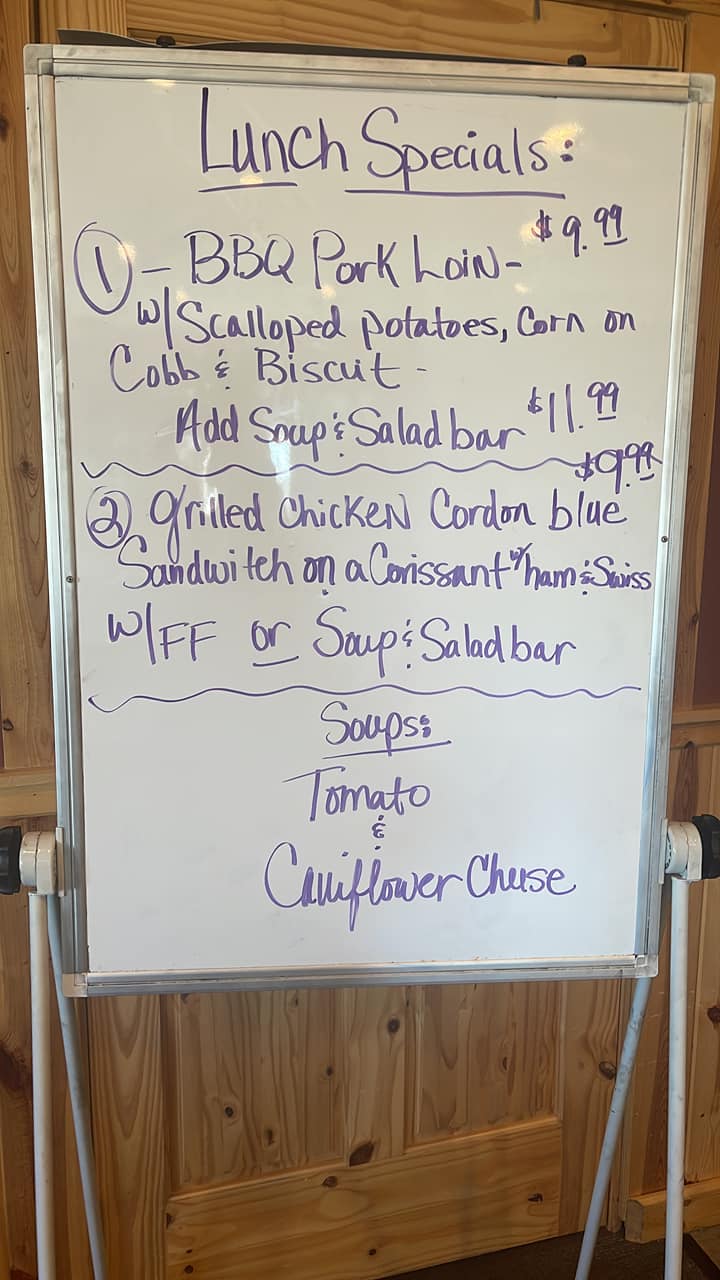 Lunch Specials:
① - BBQ Pork Loin - $9.99
w/ Scalloped potatoes, Corn on
Cobb & Biscuit -
Add Soup & Salad bar $11.99
$9.99
② Grilled Chicken Cordon blue
Sandwitch on a Corissant w/ ham & Swiss
w/FF or Soup & Salad bar
Soups:
Tomato
&
Cauiflower Cheese